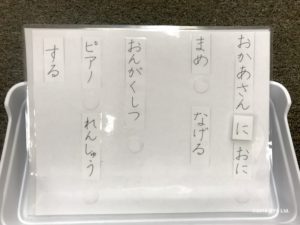 おかあさん に おに
まめ なげる
おんがくしつ
ピアノ れんしゅう
する